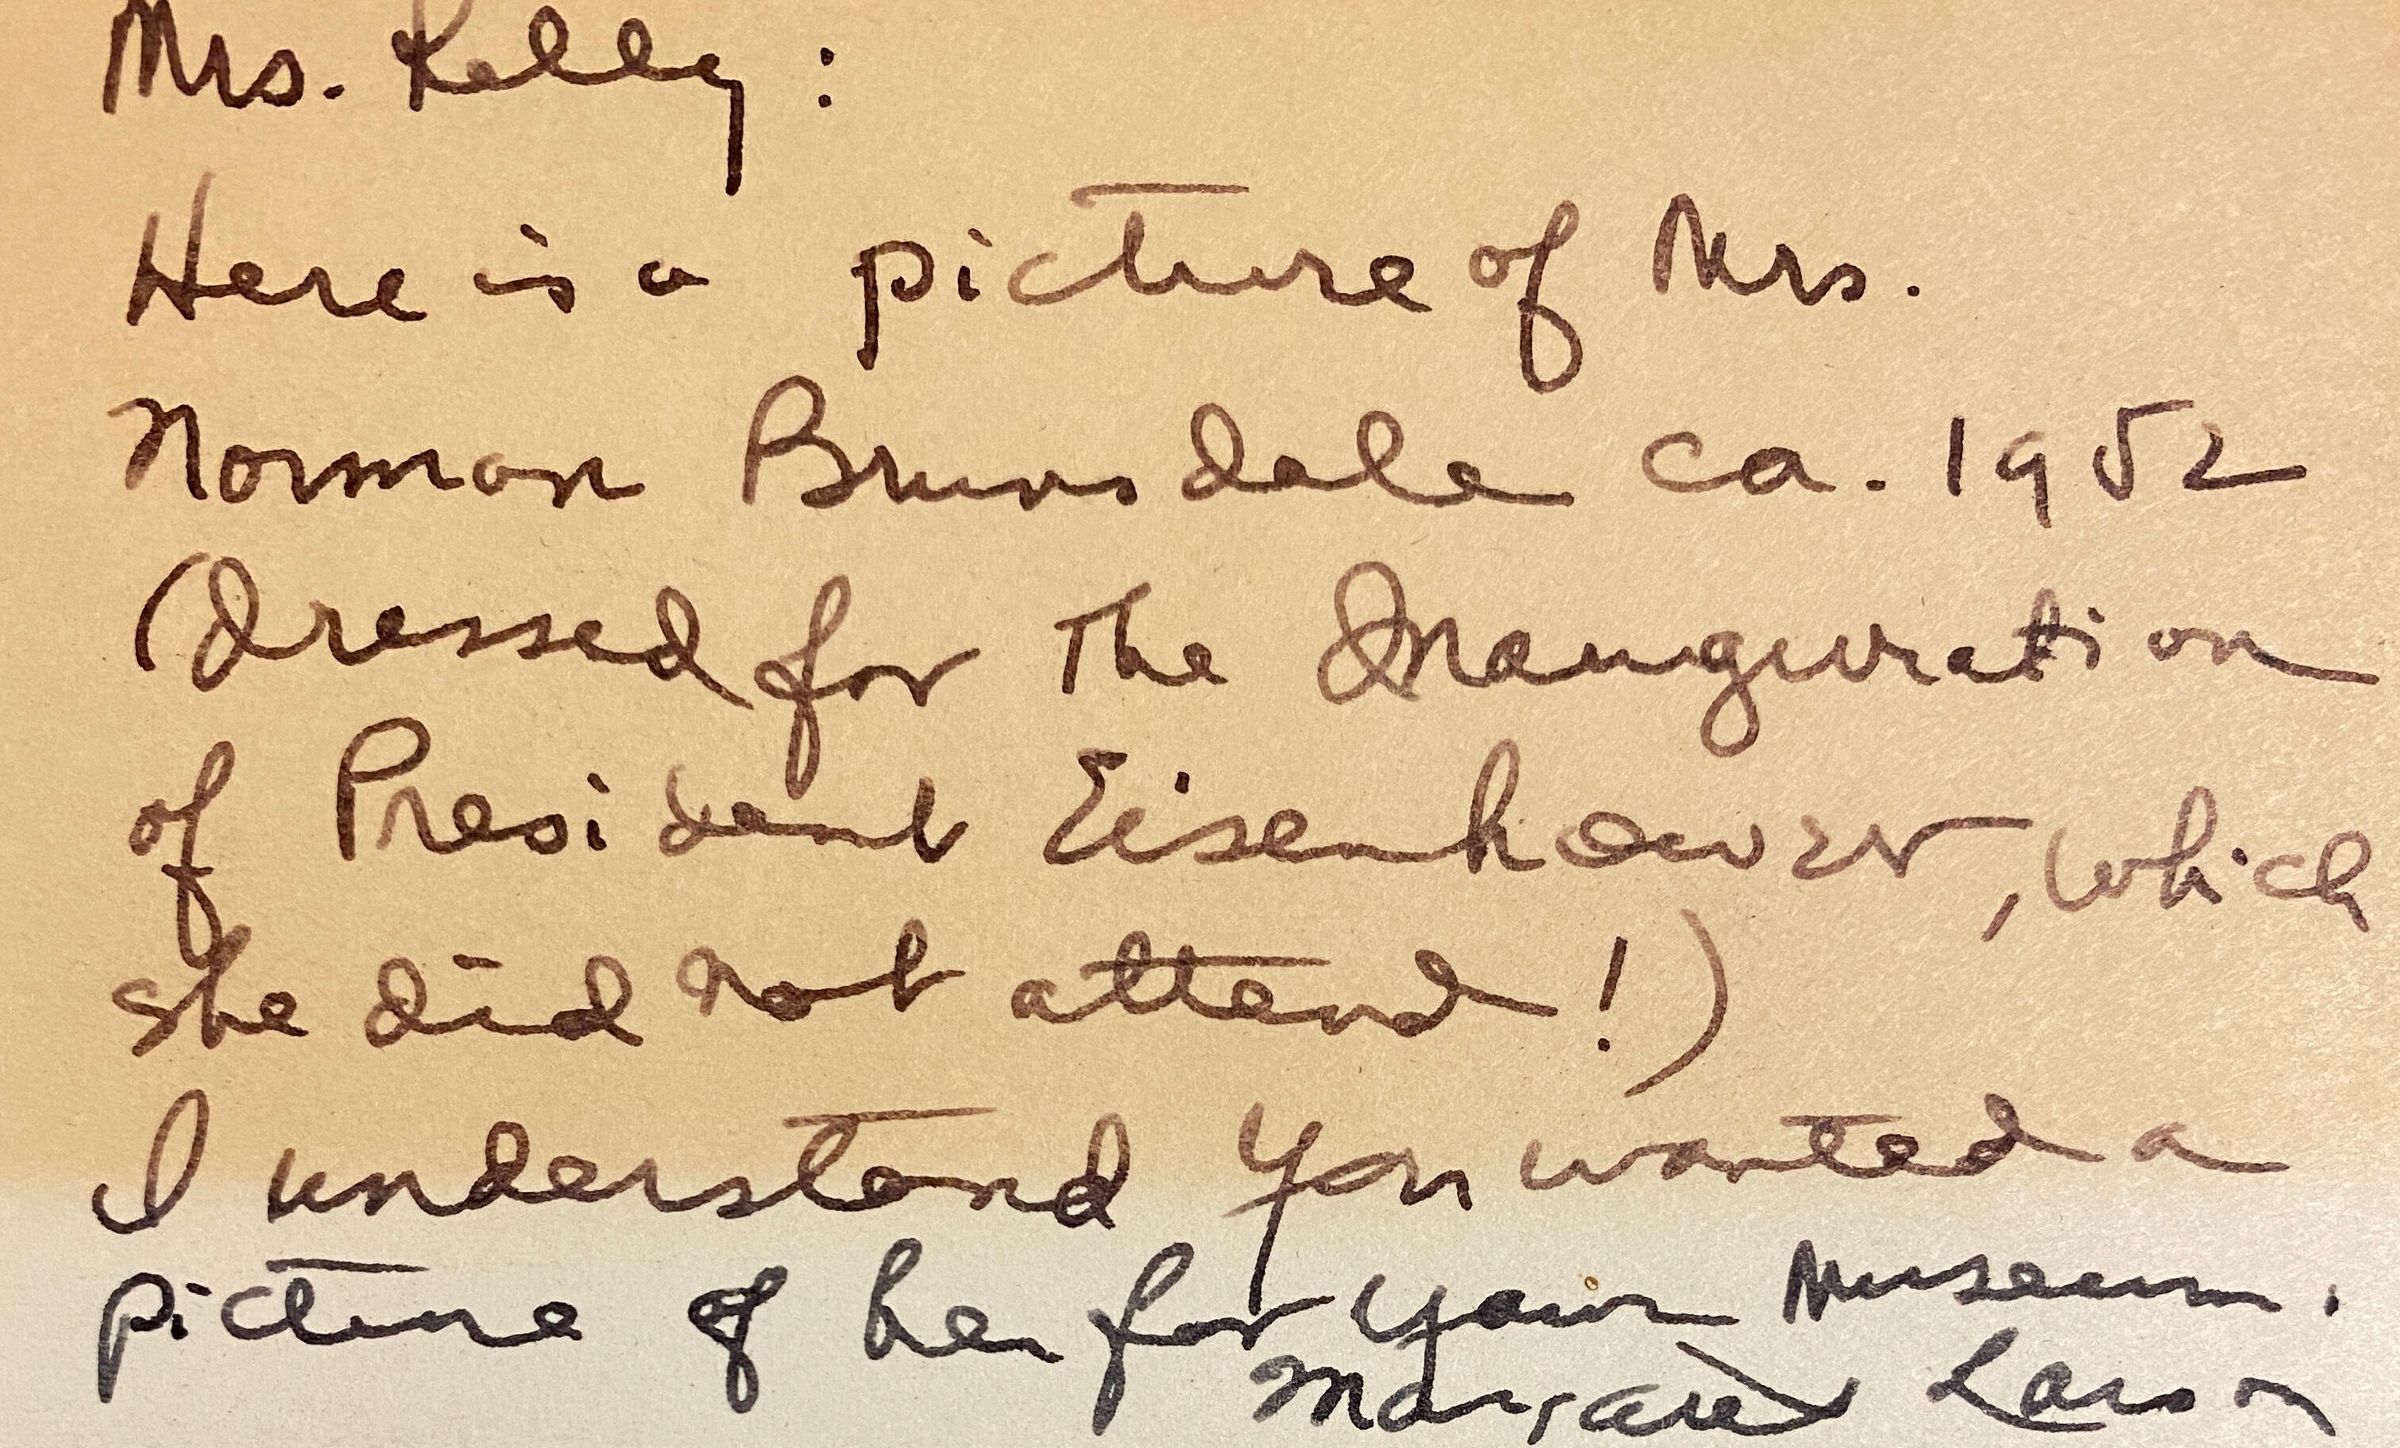 Mrs. Kelly:
Here is a picture of Mrs.
Norman Brunsdale ca. 1952
(dressed for the Inauguration
of President Eisenhower, which
she did not attend!)
I understand you wanted a
picture of her for your Museum.
Margaret Larson